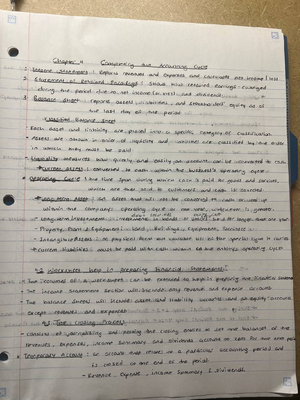 Chapter 4 Completing the Accounting Cycle
1. Income Statement: Reports revenue and expenses and calculates net income / loss
2. Statement of Retained Earnings: Shows how retained earnings changed
during the period due to net income (or loss) and dividends
3. Balance Sheet: reports assets, liabilities, and stockholders' equity as of
the last day of the period
Classified Balance Sheet
Each asset and liability are placed into a specific category of classification
- Assets are shown in order of liquidity and liabilities are classified by the order
in which they must be paid
Liquidity: measures how quickly and easily an account can be converted to cash
Current assets: converted to cash within the business's operating cycle
Operating Cycle: time span during which cash is paid for goods and services,
which are then sold to customers and cash is collected
Long-term asset: all assets that will not be converted to cash or used up
within the company's operating cycle or one year, whichever is greater
- Long-term investment: investments in bonds or stocks held for longer than one year
- Property, Plant, & Equipment: land, buildings, equipment, fixtures
- Intangible Assets: no physical form but valuable b/c of the special rights it carries
Current liabilities: must be paid with cash within the entity's operating cycle
4.2 Worksheet help in preparing Financial Statements
The income statement section will include only revenue and expense accounts
The balance sheet will include asset and liability accounts and all equity accounts
except revenues and expenses
4.3 The Closing Process
Consists of journalizing and posting the closing entries to set the balances of the
revenues, expenses, income summary and dividends accounts to zero for the next period
Temporary Account: an account that relates to a particular accounting period and
is closed at the end of the period
- Revenue, Expense, Income Summary & Dividends